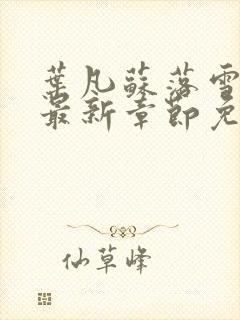 葉凡蘇落雪
最新章節免
仙草峰